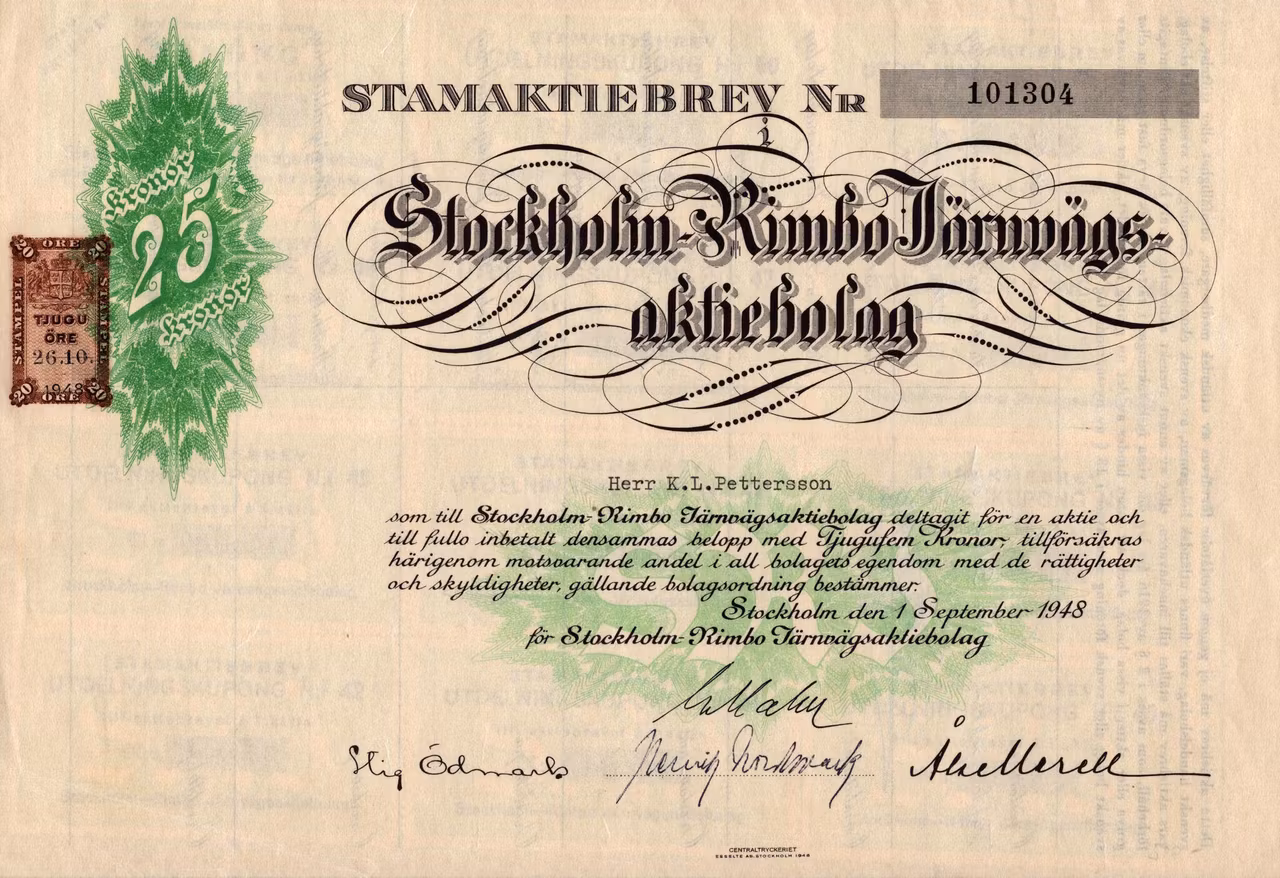 STAMAKTIEBREV NR 101304
i
Stockholm-Rimbo Järnvägs-
aktiebolag
Kronor
25
Kronor
20 ÖRE 20
STÄMPEL
STÄMPEL
TJUGU
ÖRE
26.10.
1948
20 ÖRE 20
Herr K.L.Pettersson
som till Stockholm-Rimbo Järnvägsaktiebolag deltagit för en aktie och
till fullo inbetalt densammas belopp med Tjugufem Kronor, tillförsäkras
härigenom motsvarande andel i all bolagets egendom med de rättigheter
och skyldigheter, gällande bolagsordning bestämmer.
Stockholm den 1 September 1948
för Stockholm-Rimbo Järnvägsaktiebolag
Stig Ödmark
Henrik Nordmark
Åke Merell
CENTRALTRYCKERIET
ESSELTE AB. STOCKHOLM 1948